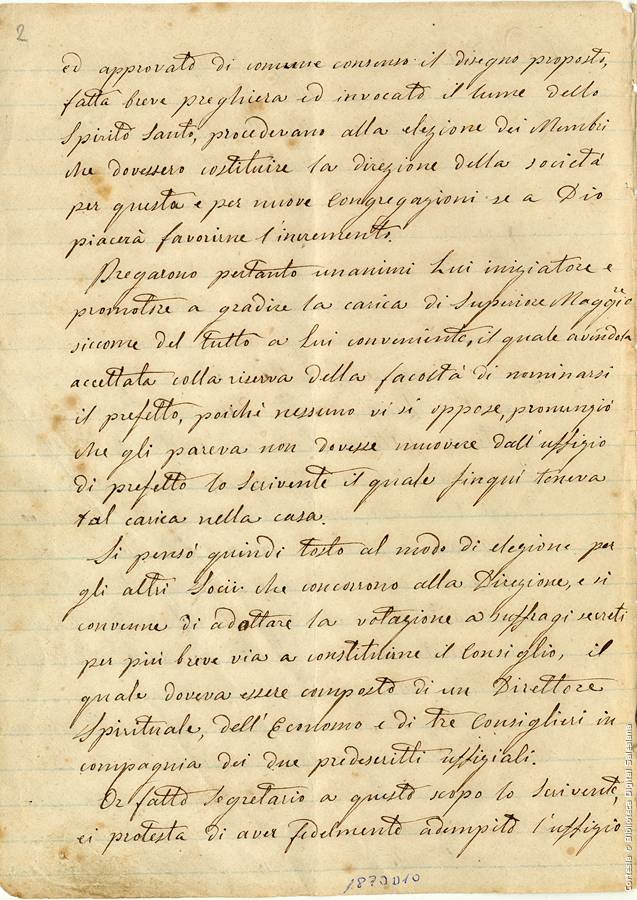 2
ed approvato di comune consenso il disegno proposto,
fatta breve preghiera ed invocato il lume dello
Spirito Santo, procedevano alla elezione dei Membri
che dovessero costituire la direzione della società
per questa e per nuove Congregazioni se a Dio
piacerà favorirne l'incremento.
Pregarono pertanto unanimi Lui iniziatore e
promotore a gradire la carica di Superiore Maggre
siccome del tutto a Lui conveniente, il quale avendola
accettata colla riserva della facoltà di nominarsi
il prefetto, poichè nessuno vi si oppose, pronunziò
che gli pareva non dovesse muovere dall'uffizio
di prefetto lo scrivente il quale finqui teneva
tal carica nella casa.
Si pensò quindi tosto al modo di elezione per
gli altri Socii che concorrono alla Direzione, e si
convenne di adottare la votazione a suffragi secreti
per più breve via a constituirne il Consiglio, il
quale doveva essere composto di un Direttore
Spirituale, dell'Economo e di tre Consiglieri in
compagnia dei due predescritti uffiziali.
Or fatto Segretario a questo scopo lo Scrivente,
ei protesta di aver fedelmente adempito l'uffizio
Cortesia © Biblioteca Digital Salesiana